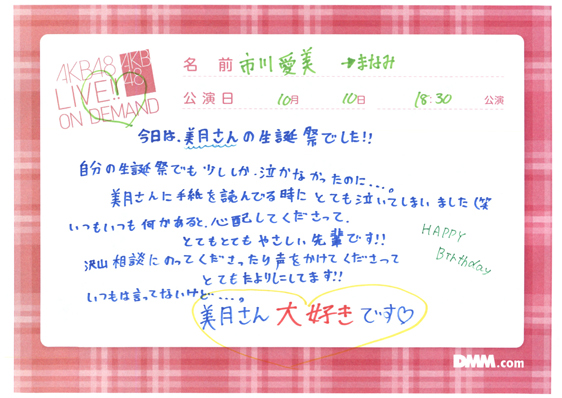 AKB48
LIVE!!
ON DEMAND
AKB
48
名 前 市川愛美 →まなみ
公演日 10月 10日 18:30 公演
今日は、美月さんの生誕祭でした!!
自分の生誕祭でも少ししか泣かなかったのに...。
美月さんに手紙を読んでる時にとても泣いてしまいました(笑
いつもいつも何かあると、心配してくださって、
とてもとてもやさしい先輩です!!
沢山相談にのってくださったり声をかけてくださって
とてもたよりにしてます!!
いつもは言ってないけど...。
美月さん大好きです♡
HAPPY
Birthday
DMM.com